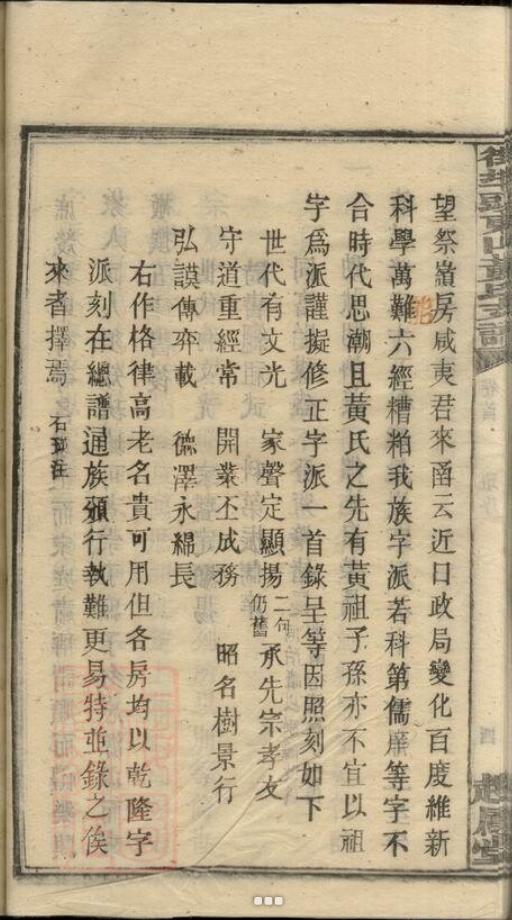 望祭嶺房咸夷君來函云近日政局變化百度維新
科學萬難六經糟粕我族字派若科第儒
合時代思潮且黃氏之先有黃祖子孫亦不宜以祖
字爲派謹擬修正字派一首錄呈等因照刻如下
世代有文光　家聲定顯揚二句仍舊承先宗孝友
守道重經常　開業丕成務　昭名樹景行
弘謨傳弈載　德澤永綿長
右作格律高老名貴可用但各房均以乾隆字
派刻在總譜通族頒行執難更易特並錄之俟
來者擇焉